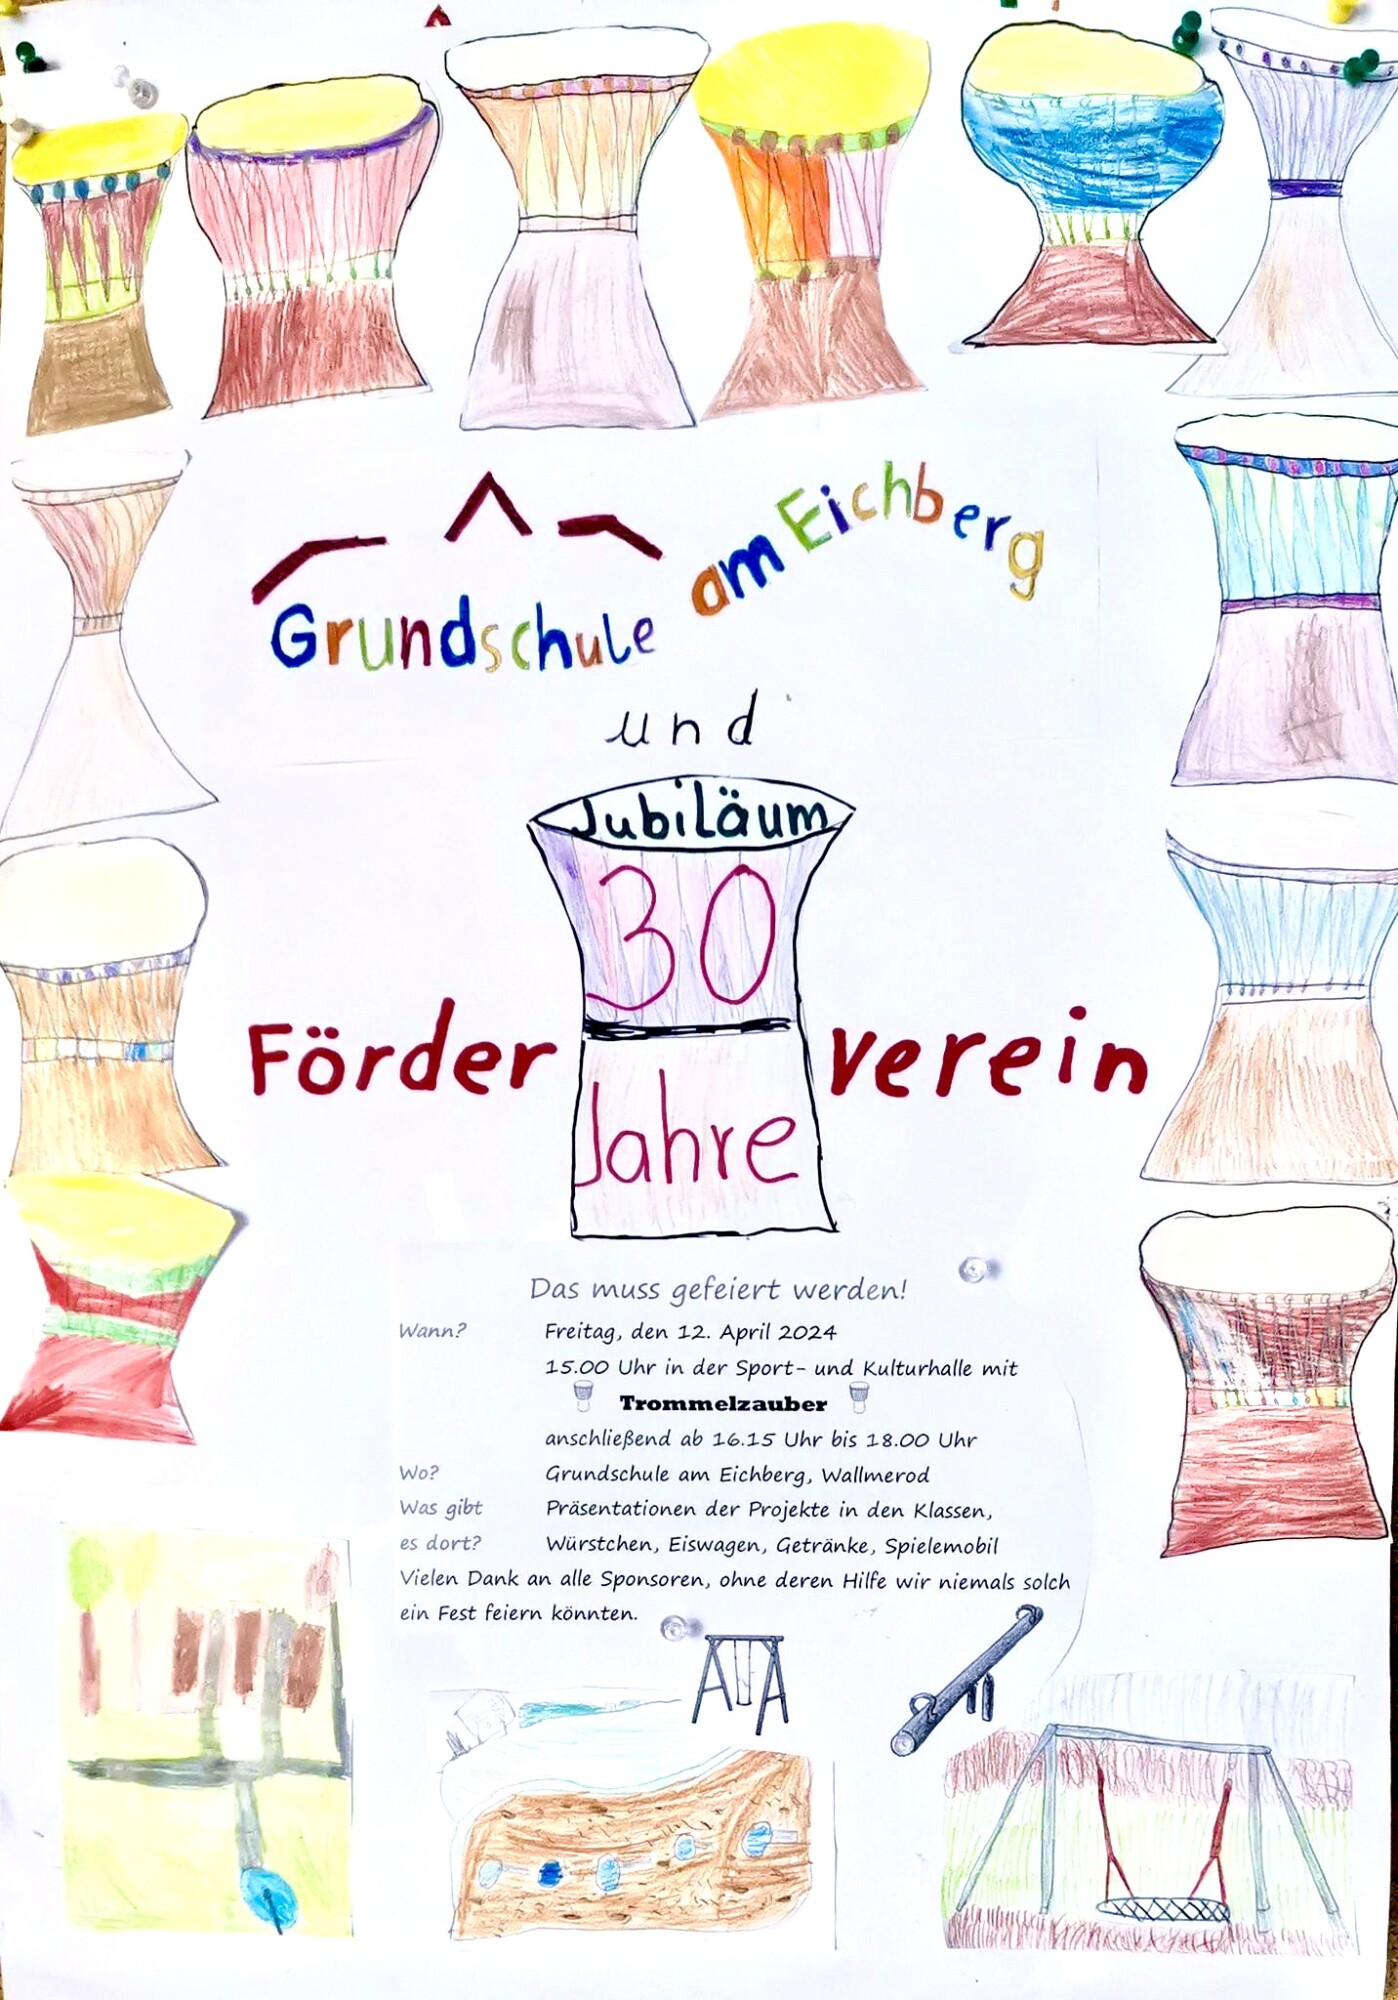 Grundschule am Eichberg
und
Jubiläum
30
Förder verein
Jahre
Das muss gefeiert werden!
Wann? Freitag, den 12. April 2024
15.00 Uhr in der Sport- und Kulturhalle mit
Trommelzauber
anschließend ab 16.15 Uhr bis 18.00 Uhr
Wo? Grundschule am Eichberg, Wallmerod
Was gibt Präsentationen der Projekte in den Klassen,
es dort? Würstchen, Eiswagen, Getränke, Spielemobil
Vielen Dank an alle Sponsoren, ohne deren Hilfe wir niemals solch
ein Fest feiern könnten.